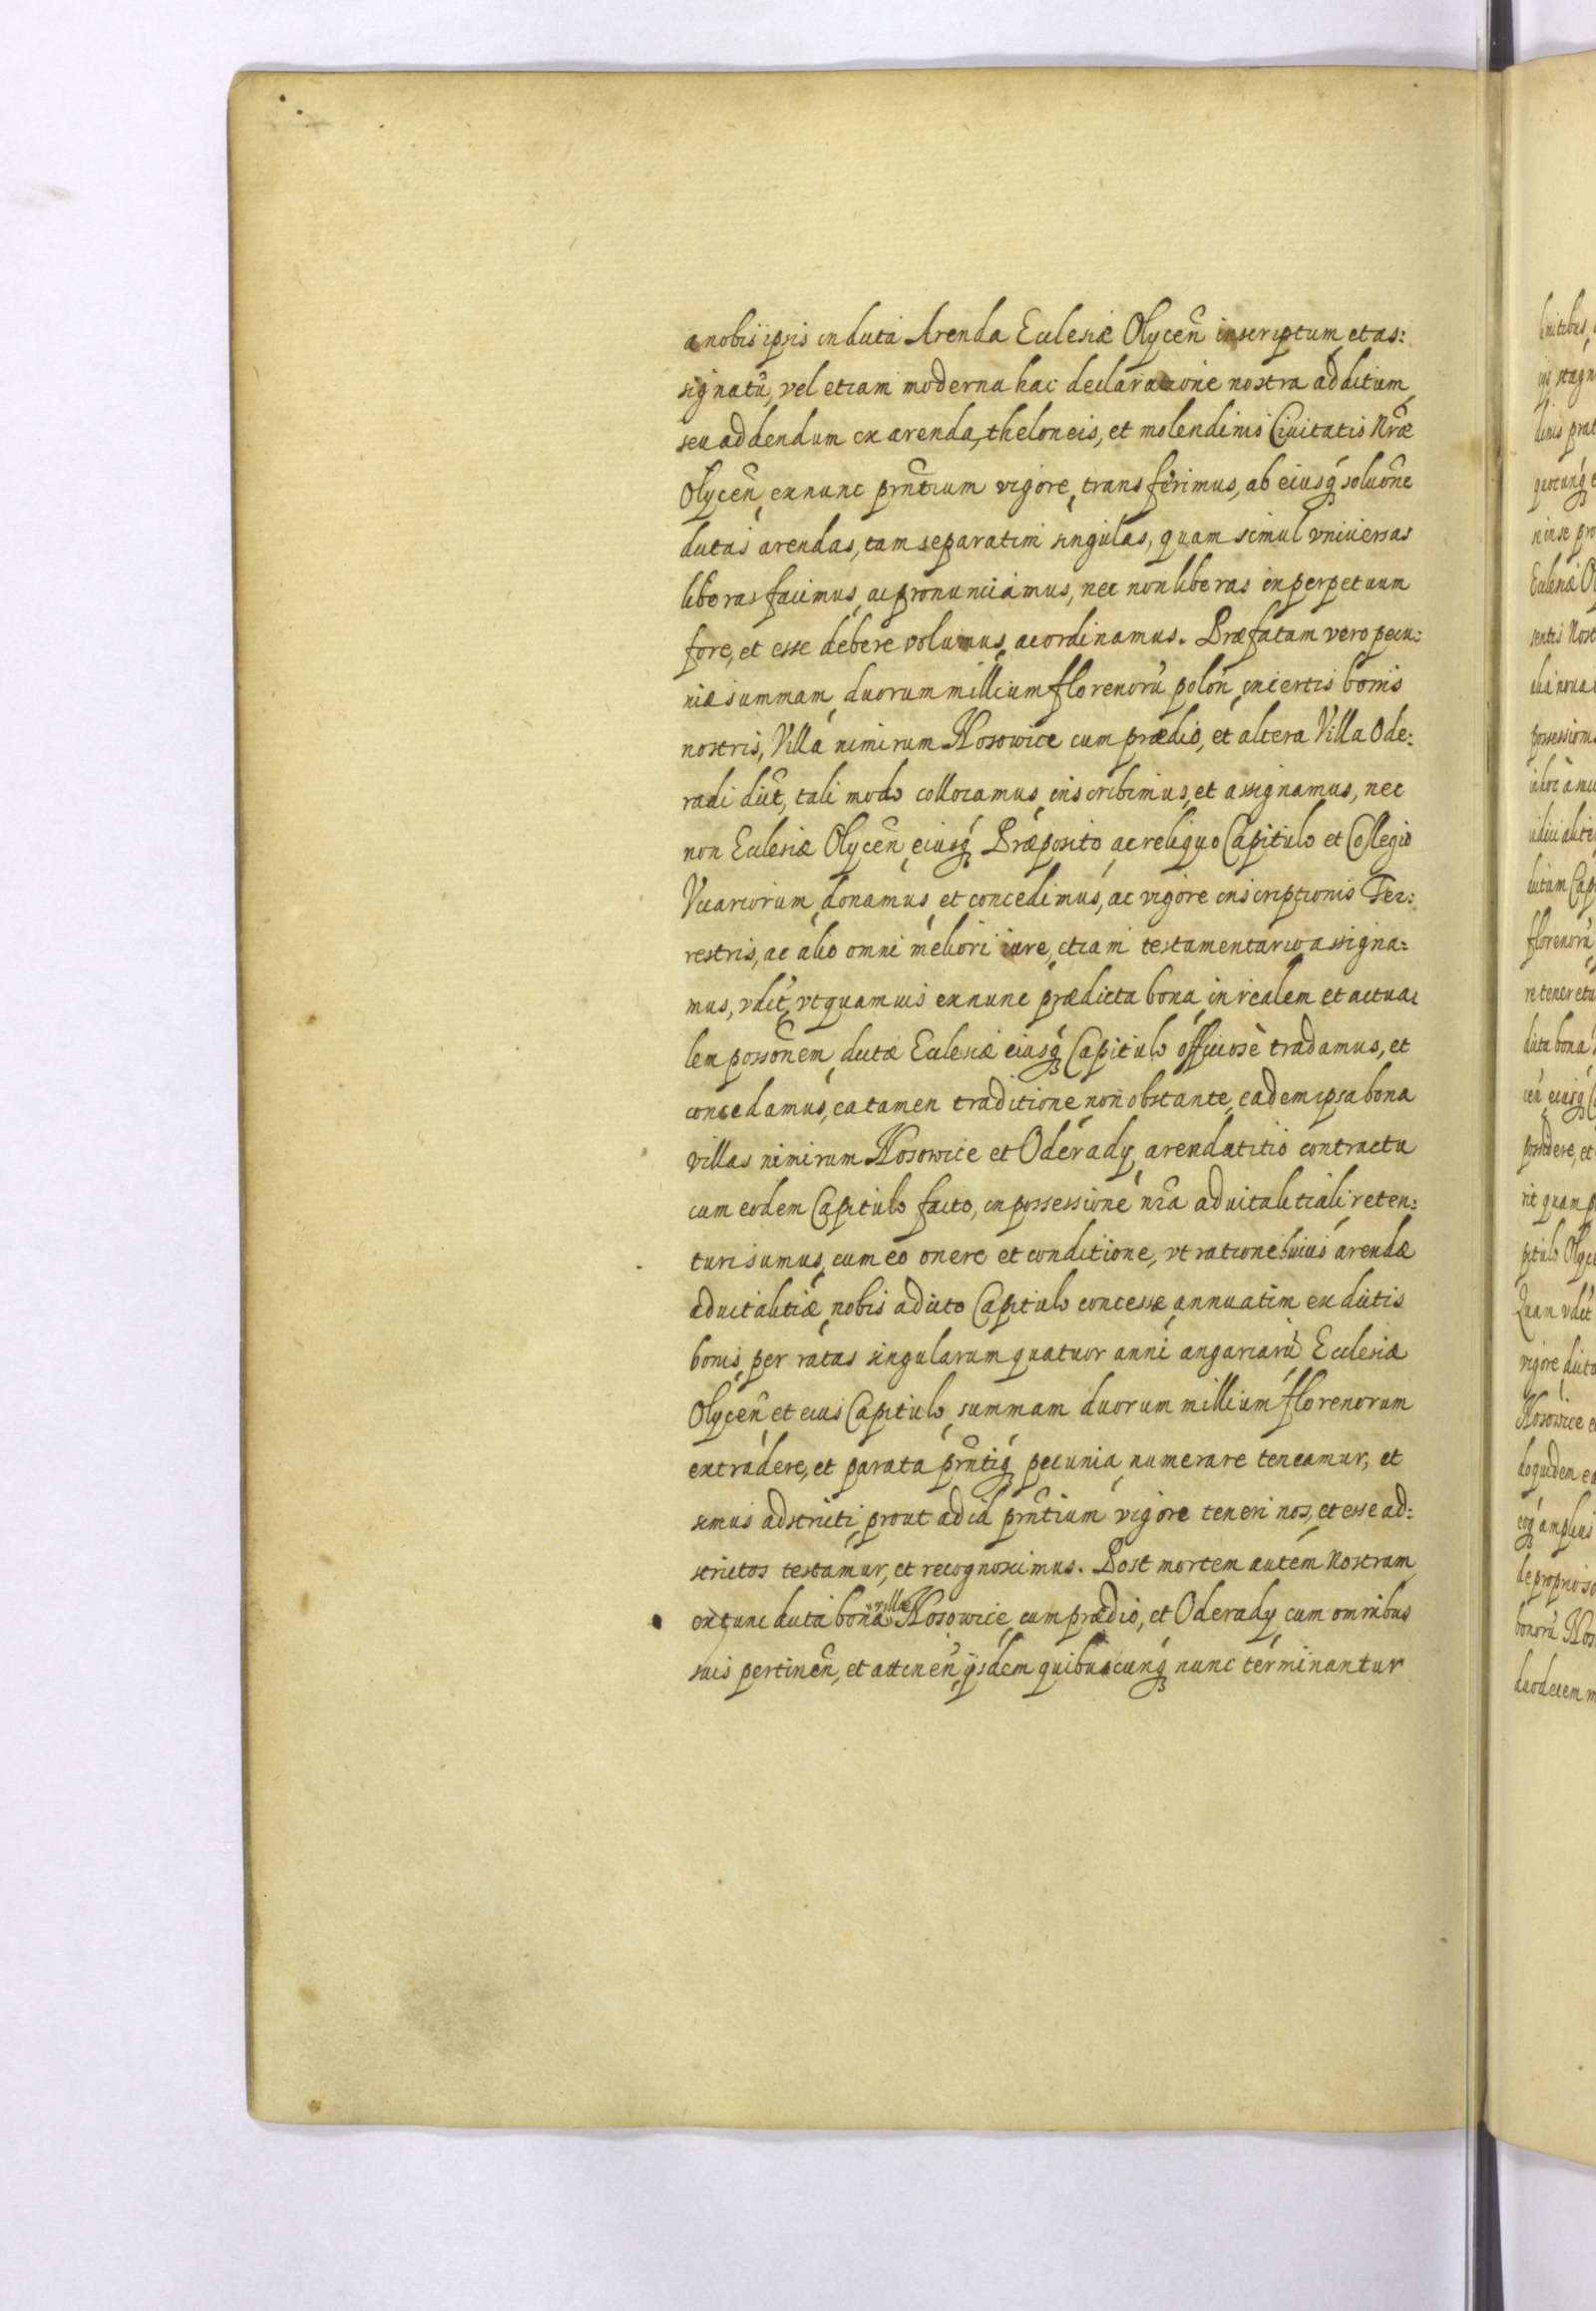 a nobis ipsis in dicta Arenda Ecclesiæ Olycen̄ inscriptum, et as:
signatū, vel etiam moderna hac declaratione nostra additum,
seu addendum ex arenda, theloneis, et molendinis Ciuitatis Nr̄æ
Olycen̄, ex nunc prn̄tium vigore, transferimus, ab eiusq́ soluōne
dictas arendas, tam separatim singulas, quam simul vniuersas
liberas facimus, ac pronunciamus, nec non liberas in perpetuum
fore, et esse debere volumus, ac ordinamus. Præfatam vero pecu:
niæ summam, duorum millium florenorū polon̄, in certis bonis
nostris, Villa nimirum Nosowice cum prædio, et altera Villa Ode:
radi dict̄, tali modo collocamus, inscribimus, et assignamus, nec
non Ecclesiæ Olycen̄, eiusq́ Præposito, ac reliquo Capitulo et Collegio
Vicariorum, donamus, et concedimus, ac vigore inscriptionis Ter:
restris, ac alio omni meliori iure, etiam testamentario assigna:
mus, vdlt̄, vt quamuis ex nunc prædicta bona, in realem et actua:
lem possōnem, dictæ Ecclesiæ eiusq́ Capitulo officiosè tradamus, et
concedamus, ea tamen traditione non obstante, eadem ipsa bona
villas nimirum Nosowice et Oderady, arendatitio contractu
cum eodem Capitulo facto, in possessione nr̄a aduitalitiali reten:
turi sumus, cum eo onere et conditione, vt ratione huius arendæ
aduitalitiæ, nobis a dicto Capitulo concessæ, annuatim ex dictis
bonis, per ratas singularum quatuor anni angariarū, Ecclesiæ
Olycen̄, et eius Capitulo, summam duorum millium florenorum
extradere, et parata prn̄tiq́ pecunia, numerare teneamur, et
simus adstricti, prout ad id prn̄tium vigore teneri nos, et esse ad:
strictos testamur, et recognoscimus. Post mortem autem Nostram,
extunc dicta bona villæ Nosowice, cum prædio, et Oderady, cum omnibus
suis pertinen̄, et attinen̄, ijsdem quibuscunq́ nunc terminantur